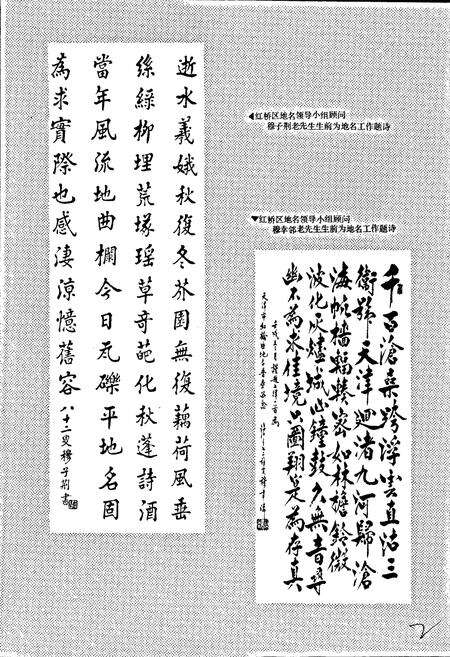 ◀红桥区地名领导小组顾问
穆子荆老先生生前为地名工作题诗
逝水義娥秋復冬芥園無復藕荷風垂
絲綠柳埋荒塚瑶草奇葩化秋蓬詩酒
當年風流地曲欄今日瓦礫平地名固
為求實際也感淒涼憶舊容 八十二叟穆子荊書
▼红桥区地名领导小组顾问
穆幸邻老先生生前为地名工作题诗
千百滄桑跨浮雲直沽三
衛號天津廻渚九河歸滄
海帆檣輻輳密如林簷鈴微
波化灰燼城心鐘鼓久無音尋
幽不為求佳境只圖翔寔為存真
2